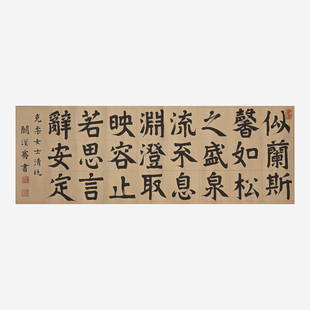 似蘭斯
馨如松
之盛泉
流不息
淵澄取
映容止
若思言
辭安定
女士清玩
書